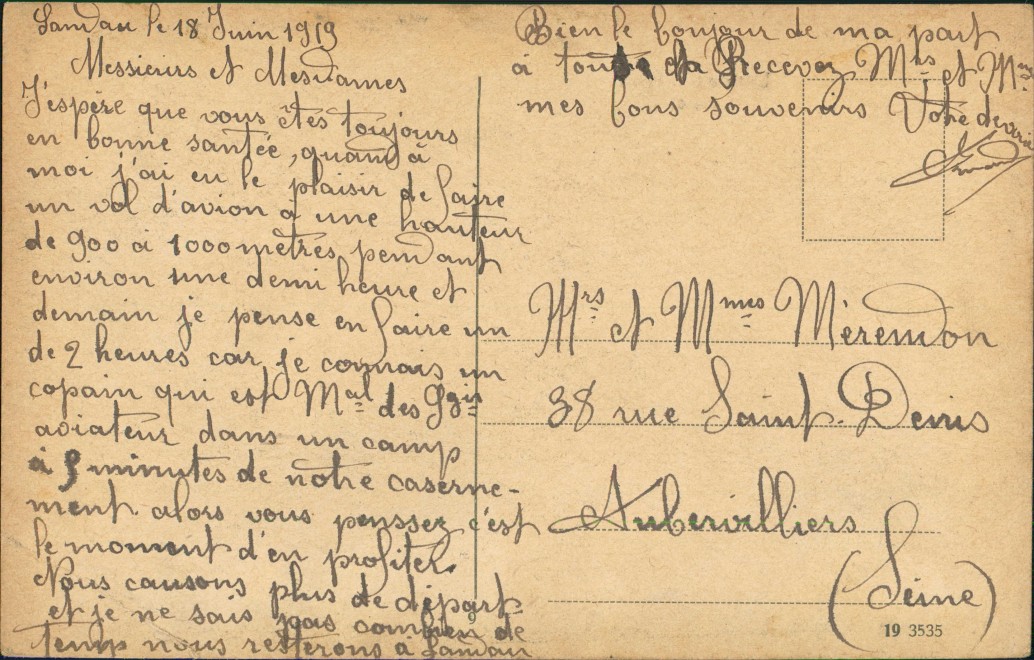 Landau le 18 Juin 1919
Messieurs et Mesdames
J'espère que vous êtes toujours
en bonne santée, quand à
moi j'ai eu le plaisir de faire
un vol d'avion à une hauteur
de 900 à 1000 mètres pendant
environ une demi heure et
demain je pense en faire un
de 2 heures car je connais un
copain qui est Mal des Lgis
aviateur dans un camp
à 5 minutes de notre caserne-
ment alors vous penssez c'est
le moment d'en profiter.
Nous causons plus de départ
et je ne sais pas combien de
temp nous resterons à Landau
Bien le bonjour de ma part
à tous Recevez Mrs et Mmes
mes bons souvenirs Votre
Mrs et Mmes Mérendon
38 rue Saint-Denis
Aubervilliers
(Seine)
9
19 3535